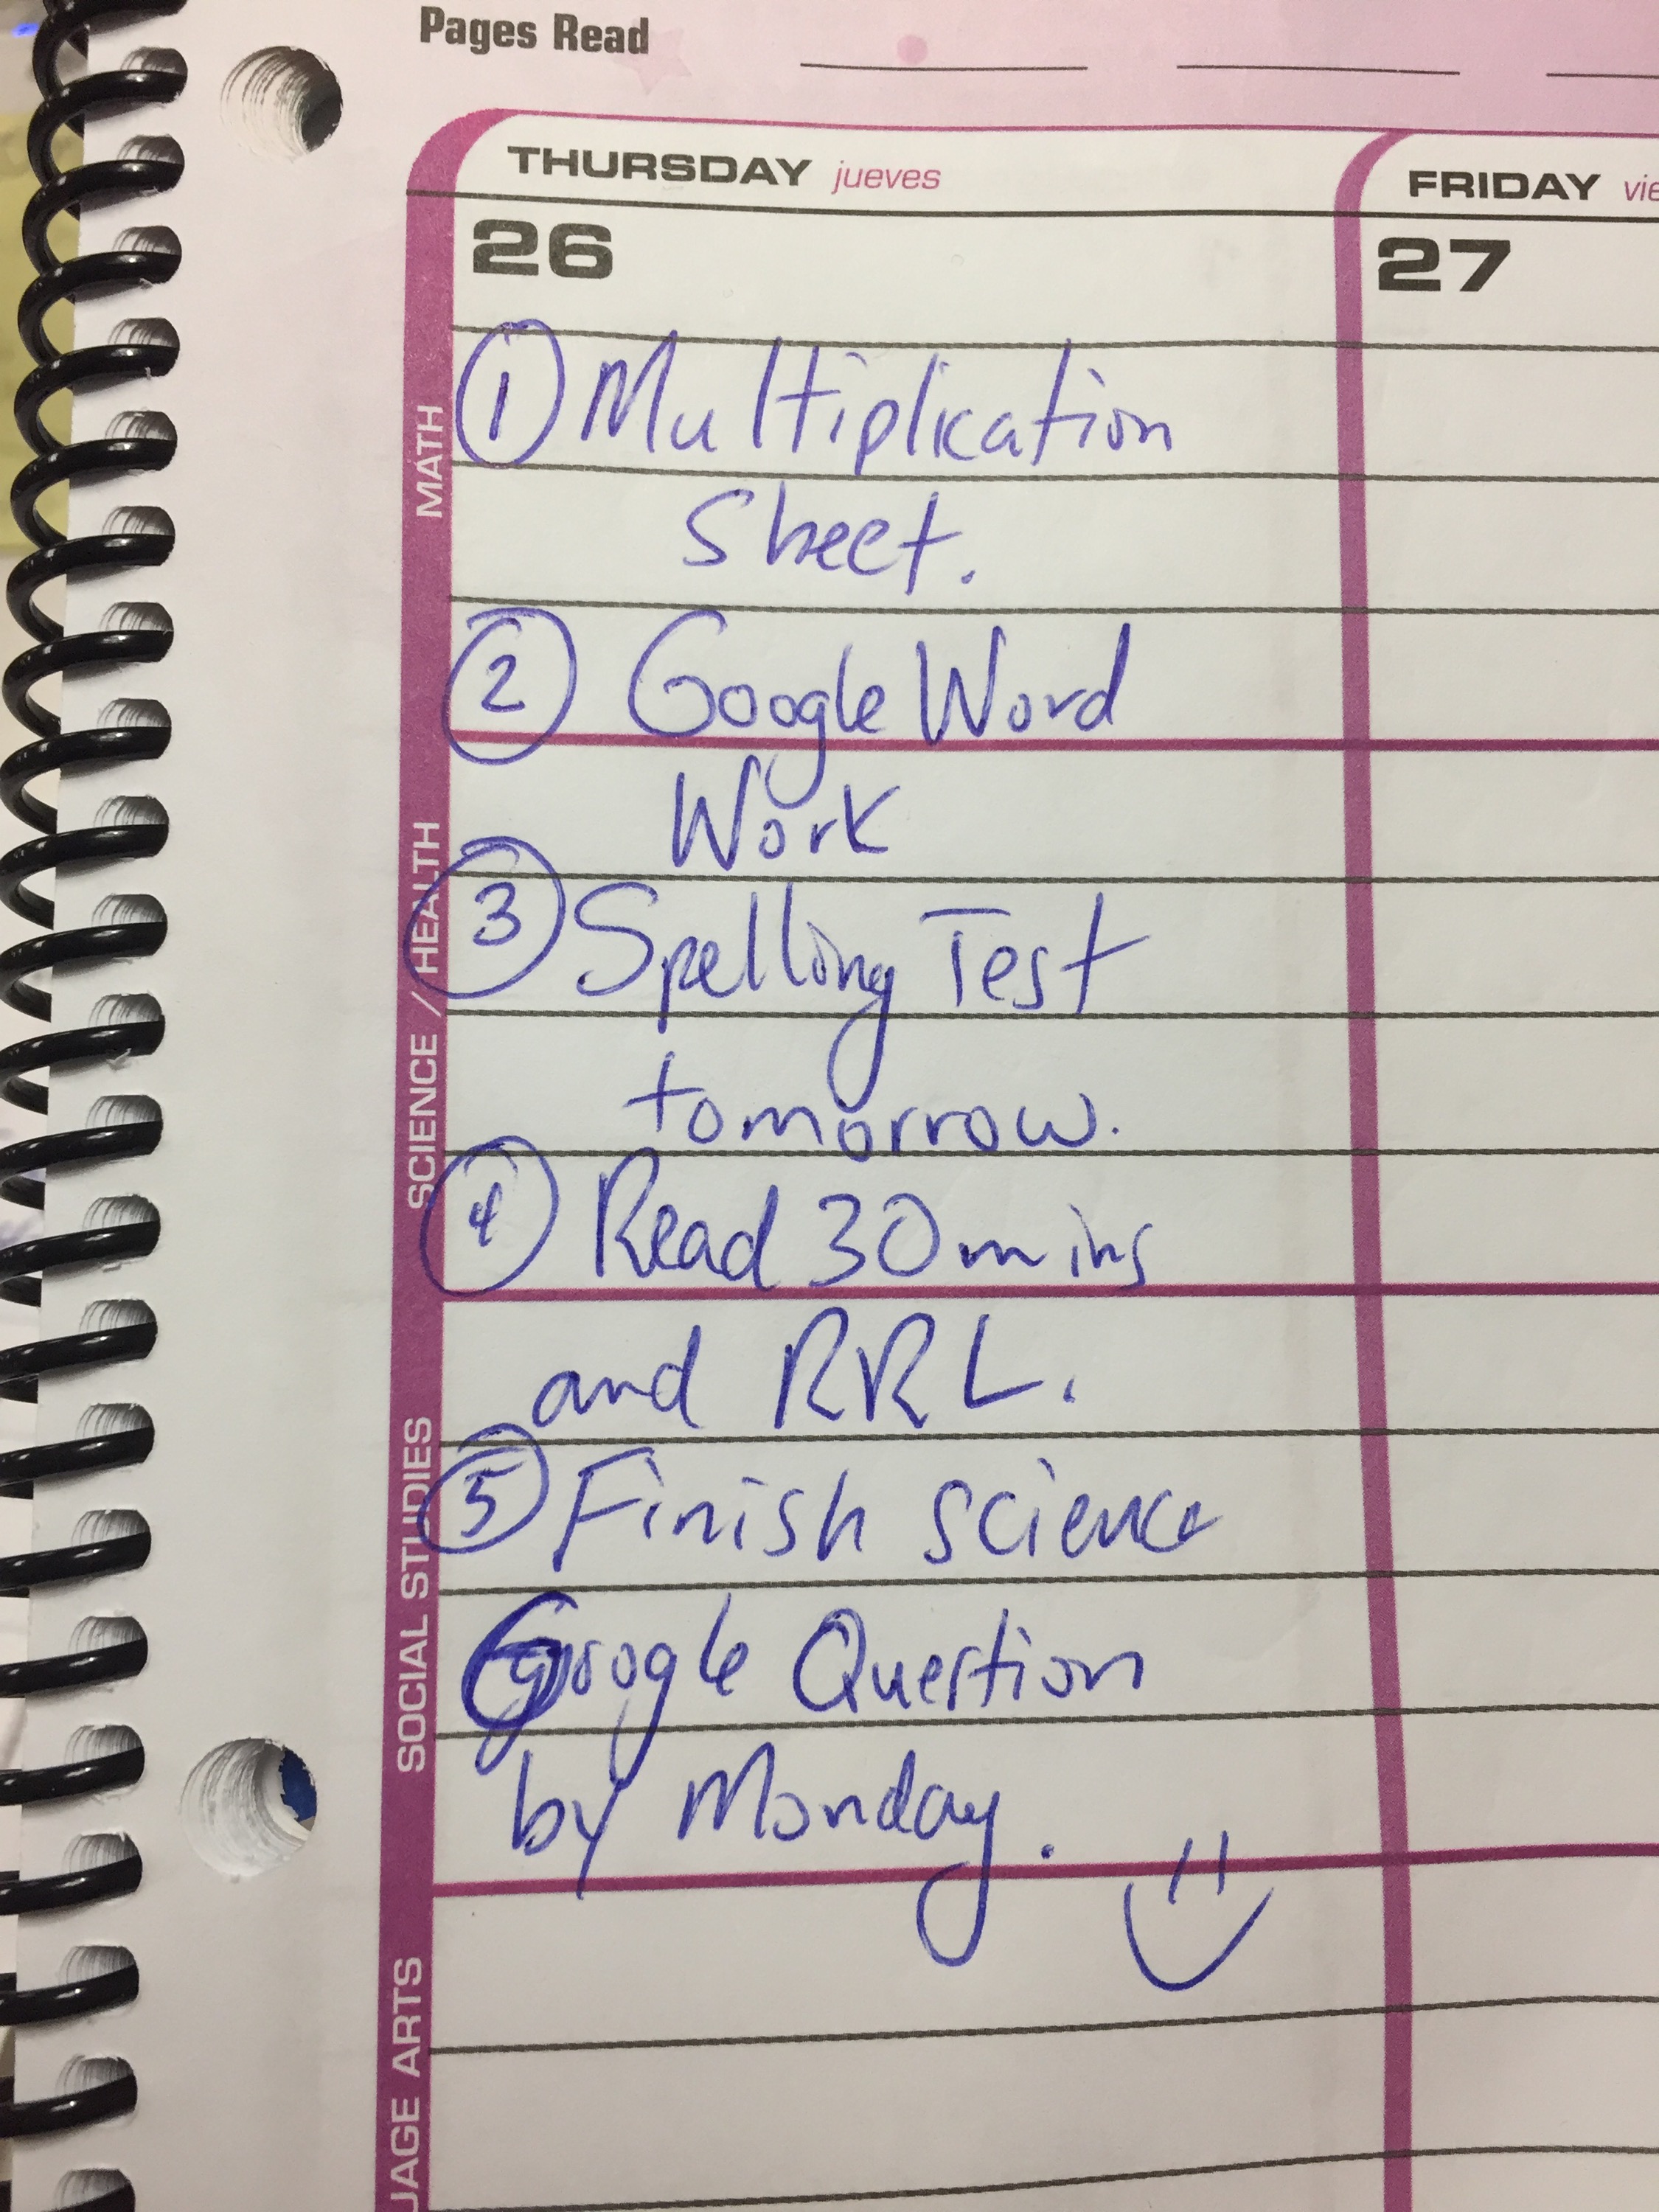 Pages Read
THURSDAY jueves
FRIDAY vie
26
27
MATH
① Multiplication
Sheet.
② Google Word
Work
SCIENCE / HEALTH
③ Spelling Test
tomorrow.
④ Read 30 mins
and RRL.
SOCIAL STUDIES
⑤ Finish science
Google Question
by Monday.
UAGE ARTS